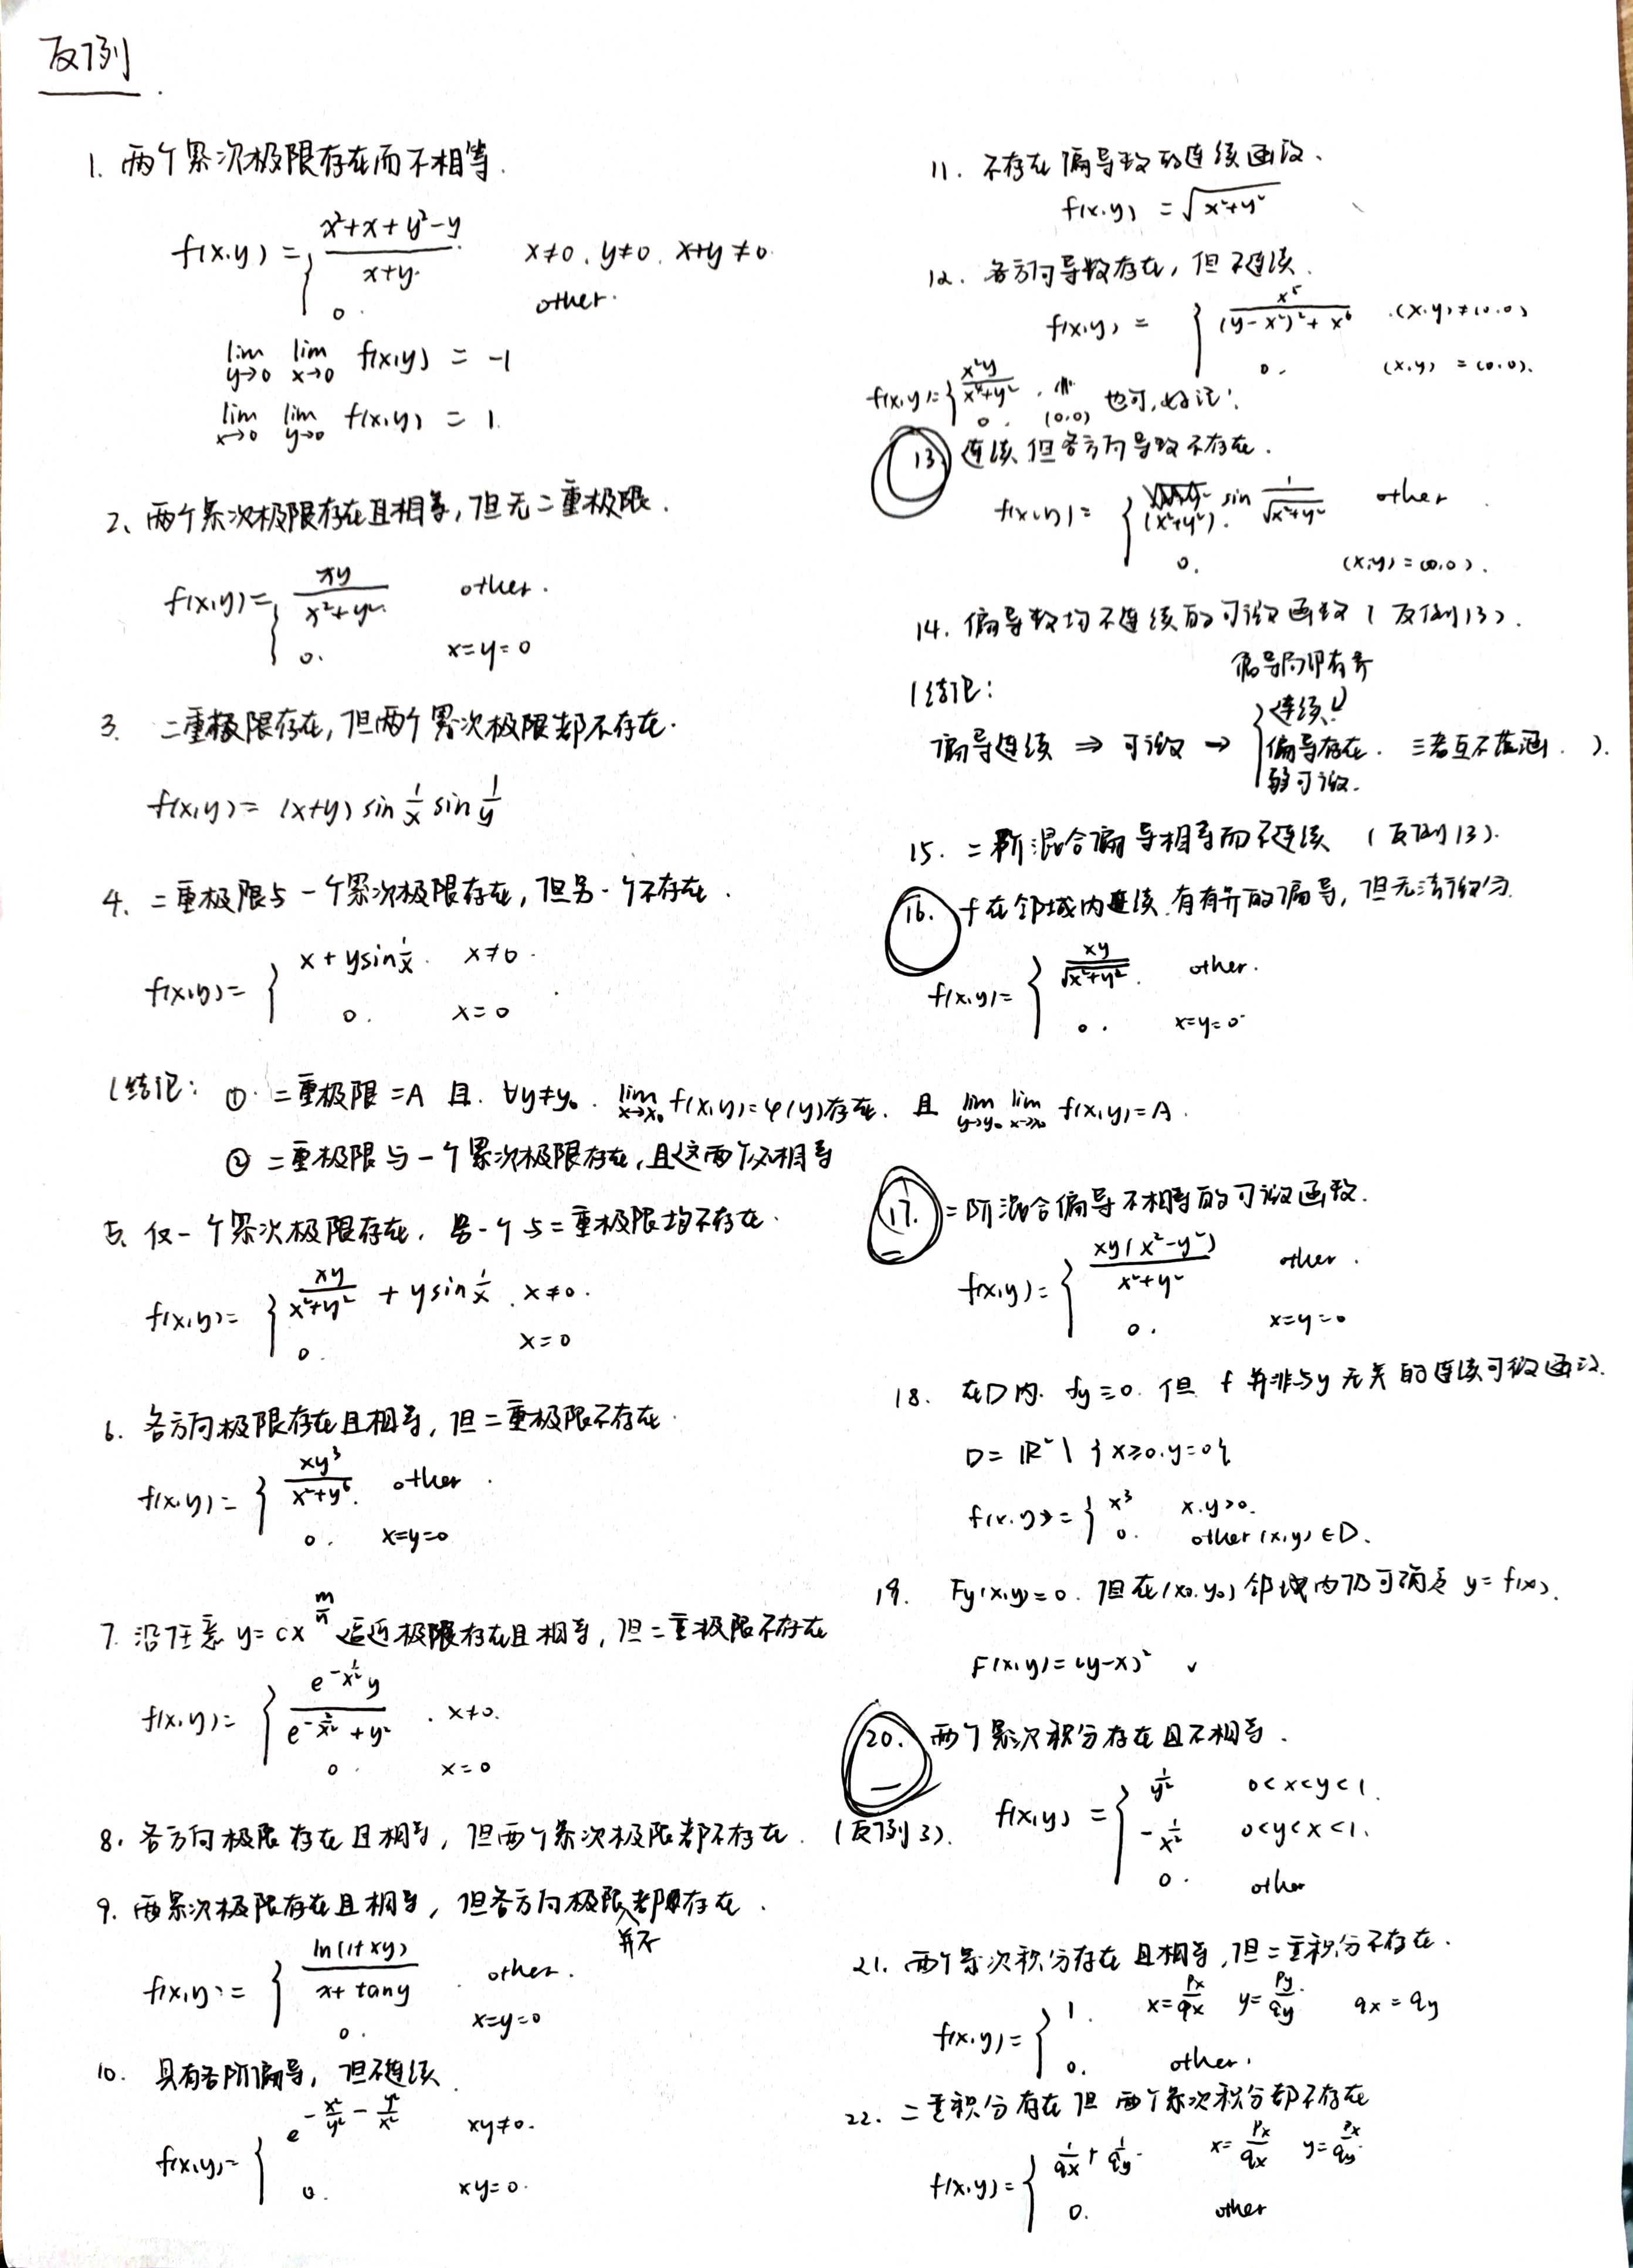 反例
1. 两个累次极限存在而不相等.
f(x,y) = { (x²+x+y²-y)/(x+y) x≠0, y≠0, x+y≠0.
0. other.
lim y→0 lim x→0 f(x,y) = -1
lim x→0 lim y→0 f(x,y) = 1.
2. 两个累次极限存在且相等, 但无二重极限.
f(x,y) = { xy/(x²+y²) other.
0. x=y=0
3. 二重极限存在, 但两个累次极限都不存在.
f(x,y) = (x+y) sin 1/x sin 1/y
4. 二重极限与一个累次极限存在, 但另一个不存在.
f(x,y) = { x + y sin 1/x. x≠0.
0. x=0
(结论: ① 二重极限=A 且. ∀y≠y₀. lim x→x₀ f(x,y)=φ(y)存在. 且 lim y→y₀ lim x→x₀ f(x,y)=A.
② 二重极限与一个累次极限存在, 且这两个必相等
5. 仅一个累次极限存在, 另一个与二重极限均不存在.
f(x,y) = { xy/(x²+y²) + y sin 1/x. x≠0.
0. x=0
6. 各方向极限存在且相等, 但二重极限不存在.
f(x,y) = { xy³/(x²+y⁶). other.
0. x=y=0
7. 沿任意 y=cx^(m/n) 逼近极限存在且相等, 但二重极限不存在
f(x,y) = { e^(-1/x²) y/(e^(-2/x²) + y²). x≠0.
0. x=0
8. 各方向极限存在且相等, 但两个累次极限都不存在. (反例3).
9. 两累次极限存在且相等, 但各方向极限并不都存在.
f(x,y) = { ln(1+xy)/(x+tan y). other.
0. x=y=0
10. 具有各阶偏导, 但不连续.
f(x,y) = { e^(-x²/y² - y²/x²) xy≠0.
0. xy=0.
11. 不存在偏导数的连续函数.
f(x,y) = √(x²+y²)
12. 各方向导数存在, 但不连续.
f(x,y) = { x⁵/((y-x²)²+x⁶). (x,y)≠(0,0)
0. (x,y)=(0,0).
f(x,y)= { x²y/(x⁴+y²).
0. (0,0) 也可, 好记!
13. 连续但各方向导数不存在.
f(x,y)= { (x²+y²). sin 1/√(x²+y²) other
0. (x,y)=(0,0).
14. 偏导数均不连续的可微函数 (反例13).
(结论: 偏导局部有界
偏导连续 ⇒ 可微 → { 连续
偏导存在. 三者互不蕴涵. ).
弱可微.
15. 二阶混合偏导相等而不连续 (反例13).
16. f在邻域内连续, 有有界的偏导, 但无法微分.
f(x,y)= { xy/√(x²+y²). other.
0. x=y=0
17. 二阶混合偏导不相等的可微函数.
f(x,y)= { xy(x²-y²)/(x²+y²) other.
0. x=y=0
18. 在D内. fy≡0. 但 f 并非与y无关的连续可微函数.
D = ℝ² \ {x≥0, y=0}
f(x,y) = { x³ x,y>0.
0. other (x,y)∈D.
19. Fy(x,y)=0. 但在(x₀,y₀)邻域内仍可确定 y=f(x).
F(x,y)=(y-x)² ✓
20. 两个累次积分存在且不相等.
f(x,y) = { 1/y² 0<x<y<1.
-1/x² 0<y<x<1.
0. other
21. 两个累次积分存在且相等, 但二重积分不存在.
f(x,y)= { 1. x=px/qx y=py/qy. qx=qy
0. other.
22. 二重积分存在但两个累次积分都不存在
f(x,y)= { 1/qx + 1/qy. x=px/qx y=px/qy.
0. other